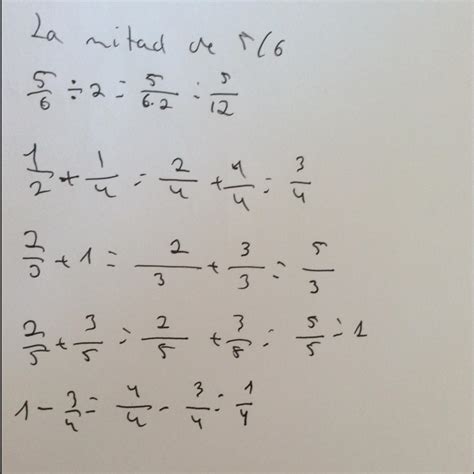 La mitad de 5/6
5/6 ÷ 2 = 5/6·2 = 5/12
1/2 + 1/4 = 2/4 + 1/4 = 3/4
2/3 + 1 = 2/3 + 3/3 = 5/3
2/5 + 3/5 = 2/5 + 3/5 = 5/5 = 1
1 - 3/4 = 4/4 - 3/4 = 1/4